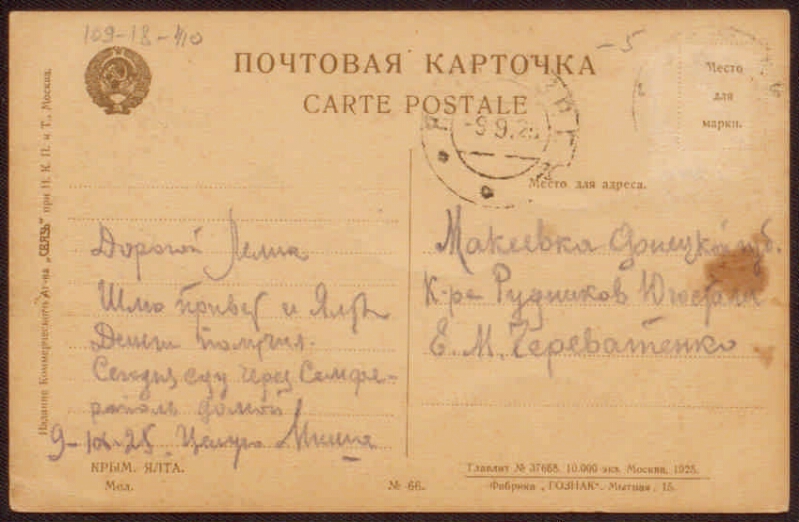 109-18-40
-5
ПОЧТОВАЯ КАРТОЧКА
CARTE POSTALE
Место
для
марки.
-9.9.25
Место для адреса.
Издание Коммерческого Аг-ва „СВЯЗЬ" при Н. К. П. и Т., Москва.
Дорогой Леля
Шлю привет и Ялты
Деньги получил.
Сегодня еду через Симфе-
рополь домой
9-IX-25. Целую Миша
Макеевка Донецкой губ.
К-ра Рудников
Е. М. Череватенко
КРЫМ. ЯЛТА.
Мед.
№ 66.
Главлит № 37668. 10.000 экз. Москва, 1925.
Фабрика „ГОЗНАК". Мытная, 15.